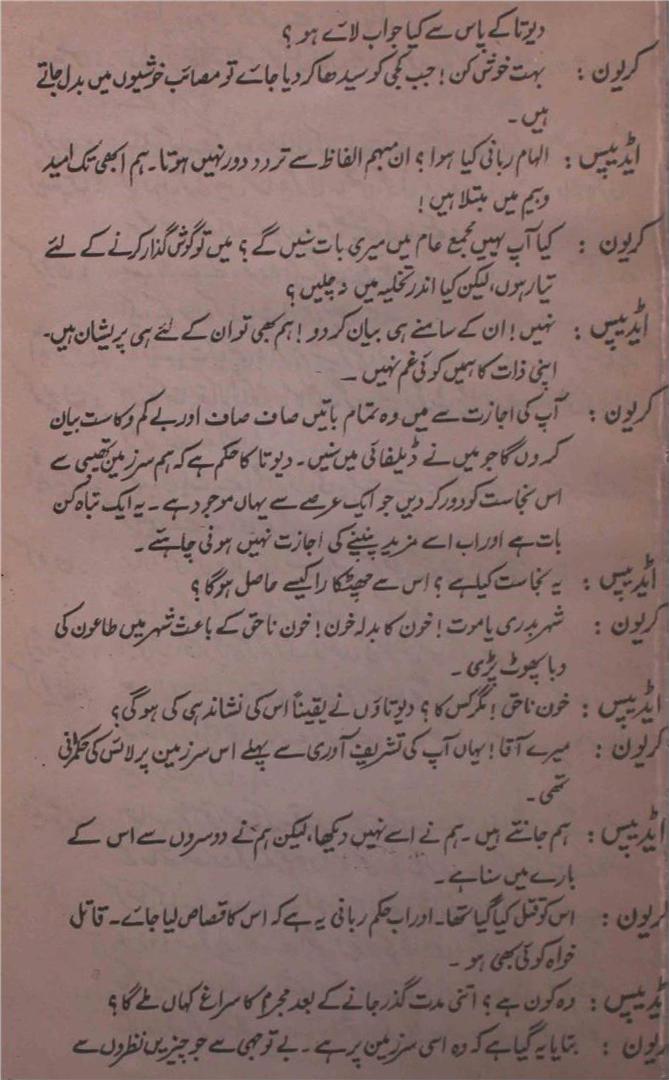 دیوتا کے پاس سے کیا جواب لائے ہو ؟
کریون : بہت خوش کن ! جب کجی کو سیدھا کر دیا جائے تو مصائب خوشیوں میں بدل جاتے
ہیں ۔
ایڈیپس : الہام ربانی کیا ہوا ؟ ان مبہم الفاظ سے تردد دور نہیں ہوتا ۔ ہم ابھی تک امید
وبیم میں مبتلا ہیں !
کریون : کیا آپ یہیں مجمع عام میں میری بات سنیں گے ؟ میں تو گوش گذار کرنے کے لئے
تیار ہوں ، لیکن کیا اندر تخلیہ میں نہ چلیں ؟
ایڈیپس : نہیں ! ان کے سامنے ہی بیان کر دو ! ہم بھی تو ان کے لئے ہی پریشان ہیں ۔
اپنی ذات کا ہمیں کوئی غم نہیں ۔
کریون : آپ کی اجازت سے میں وہ تمام باتیں صاف صاف اور بے کم و کاست بیان
کروں گا جو میں نے ڈیلفائی میں سنیں ۔ دیوتا کا حکم ہے کہ ہم سرزمین تھیبی سے
اس نجاست کو دور کر دیں جو ایک عرصے سے یہاں موجود ہے ۔ یہ ایک تباہ کن
بات ہے اور اب اسے مزید پنپنے کی اجازت نہیں ہونی چاہئے ۔
ایڈیپس : یہ نجاست کیا ہے ؟ اس سے چھٹکارا کیسے حاصل ہوگا ؟
کریون : شہر بدری یا موت ! خون کا بدلہ خون ! خون ناحق کے باعث شہر میں طاعون کی
وبا پھوٹ پڑی ۔
ایڈیپس : خون ناحق ! مگر کس کا ؟ دیوتاؤں نے یقیناً اس کی نشاندہی کی ہو گی ؟
کریون : میرے آقا ! یہاں آپ کی تشریف آوری سے پہلے اس سرزمین پر لائس کی حکمرانی
تھی ۔
ایڈیپس : ہم جانتے ہیں ۔ ہم نے اسے نہیں دیکھا ، لیکن ہم نے دوسروں سے اس کے
بارے میں سنا ہے ۔
کریون : اس کو قتل کیا گیا تھا ۔ اور اب حکم ربانی یہ ہے کہ اس کا قصاص لیا جائے ۔ قاتل
خواہ کوئی بھی ہو ۔
ایڈیپس : وہ کون ہے ؟ اتنی مدت گذر جانے کے بعد مجرم کا سراغ کہاں ملے گا ؟
کریون : بتایا یہ گیا ہے کہ وہ اسی سرزمین پر ہے ۔ بے توجہی سے جو چیزیں نظروں سے